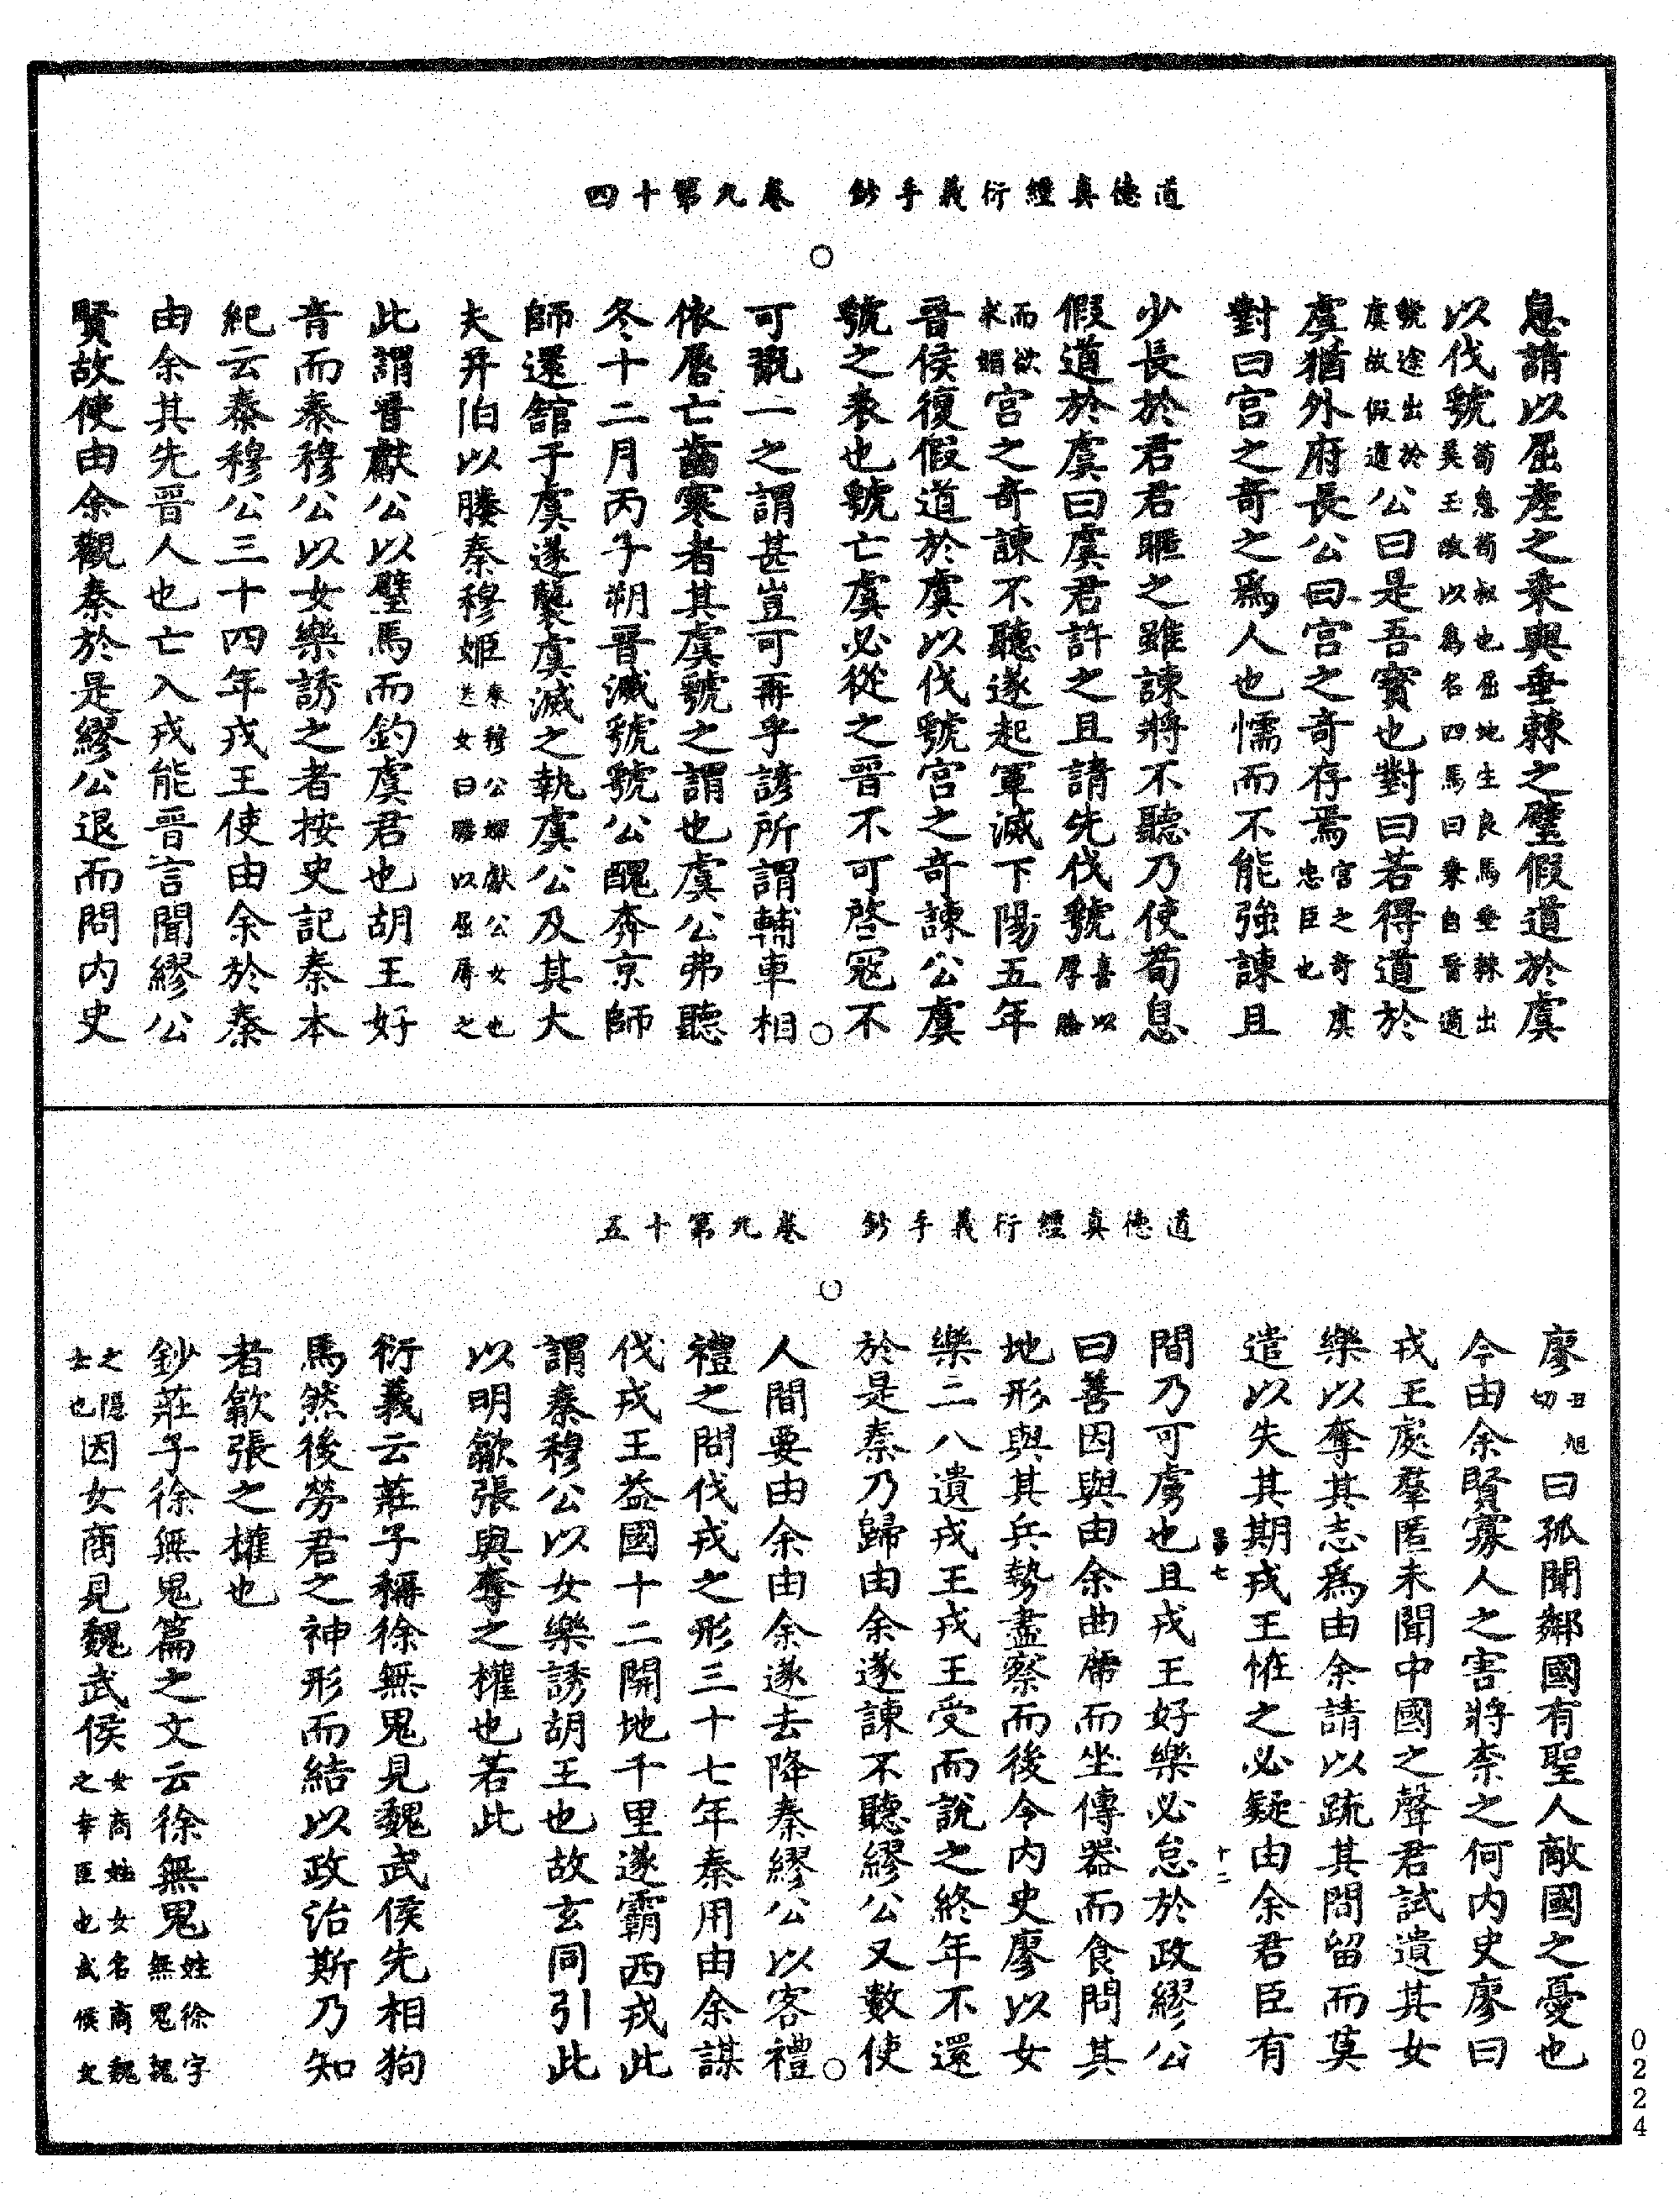 道德真經衍義手鈔 卷九第十四
息請以屈產之乘與垂棘之璧假道於虞
以伐虢荀息荀叔也屈地生良馬垂棘出美玉故以為名四馬曰乘自晉適
虢途出於虞故假道公曰是吾寶也對曰若得道於
虞猶外府長公曰宮之奇存焉宮之奇虞忠臣也
對曰宮之奇之為人也懦而不能強諫且
少長於君君暱之雖諫將不聽乃使荀息
假道於虞曰虞君許之且請先伐虢喜以厚賂
而欲求媚宮之奇諫不聽遂起軍滅下陽五年
晉侯復假道於虞以伐虢宮之奇諫公虞
虢之表也虢亡虞必從之晉不可啓寇不
可翫一之謂甚豈可再乎諺所謂輔車相
依唇亡齒寒者其虞虢之謂也虞公弗聽
冬十二月丙子朔晉滅虢虢公醜奔京師
師還舘于虞遂襲虞滅之執虞公及其大
夫井伯以媵秦穆姬秦穆公姬獻公女也送女曰媵以屈辱之
此謂晉獻公以璧馬而釣虞君也胡王好
音而秦穆公以女樂誘之者按史記秦本
紀云秦穆公三十四年戎王使由余於秦
由余其先晉人也亡入戎能晉言聞繆公
賢故使由余觀秦於是繆公退而問內史
道德真經衍義手鈔 卷九第十五
廖丑旭切曰孤聞鄰國有聖人敵國之憂也
今由余賢寡人之害將柰之何內史廖曰
戎王處羣匿未聞中國之聲君試遺其女
樂以奪其志為由余請以疏其間留而莫
遣以失其期戎王恠之必疑由余君臣有
間乃可虜也且戎王好樂必怠於政繆公
曰善因與由余曲席而坐傳器而食問其
地形與其兵勢盡察而後令內史廖以女
樂二八遺戎王戎王受而說之終年不還
於是秦乃歸由余遂諫不聽繆公又數使
人間要由余由余遂去降秦繆公以客禮
禮之問伐戎之形三十七年秦用由余謀
伐戎王益國十二開地千里遂霸西戎此
謂秦穆公以女樂誘胡王也故玄同引此
以明歙張與奪之權也若此
衍義云莊子稱徐無鬼見魏武侯先相狗
馬然後勞君之神形而結以政治斯乃知
者歙張之權也
鈔莊子徐無鬼篇之文云徐無鬼姓徐字無鬼魏
之隱士也因女商見魏武侯女商姓女名商魏之幸臣也武侯文
十二
0224